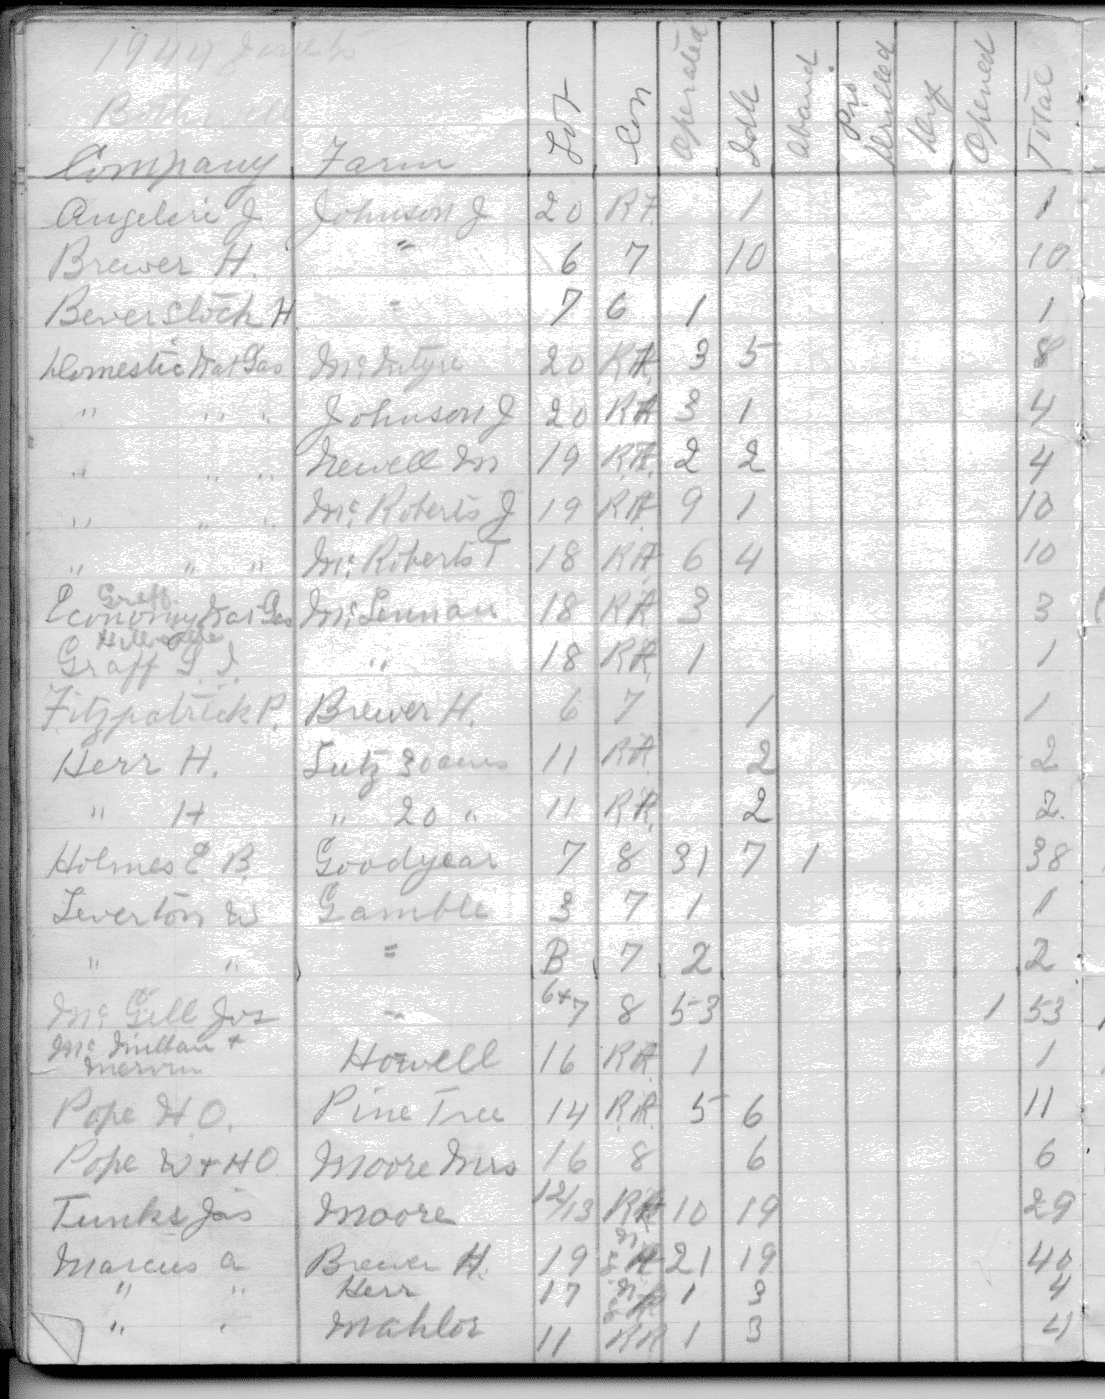 1944
Company Farm Lot Con Operated Idle Aband. Pro Drilled Dry Opened Total
Angeleri J Johnson J 20 R.R. 1 1
Brewer H. " 6 7 10 10
Beverslock H " 7 6 1 1
Domestic Nat Gas McIntyre 20 R.R. 3 5 8
" " " Johnson J 20 R.R. 3 1 4
" " " Newell M 19 R.R. 2 2 4
" " " Mc Roberts J 19 R.R. 9 1 10
" " " Mc Roberts T 18 R.R. 6 4 10
Graff
Economy Nat Gas McLennan 18 R.R. 3 3
Graff S. J. " 18 R.R. 1 1
Fitzpatrick P. Brewer H. 6 7 1 1
Herr H. Lutz 30 acres 11 R.R. 2 2
" H " 20 " 11 R.R. 2 2.
Holmes E. B. Goodyear 7 8 31 7 1 38
Leverton W Gamble 3 7 1 1
" " " B 7 2 2
Mc Gill Jos " 6+7 8 53 1 53
Mc Millan +
Mervin Howell 16 R.R. 1 1
Pope H. O. Pine Tree 14 R.R. 5 6 11
Pope W + H O Moore Mrs 16 8 6 6
Tunks Jas Moore 12/13 R.R. 10 19 29
Marcus A Brewer H. 19 21 19 40
" " Herr 17 1 3 4
" " Mahlor 11 R R 1 3 4